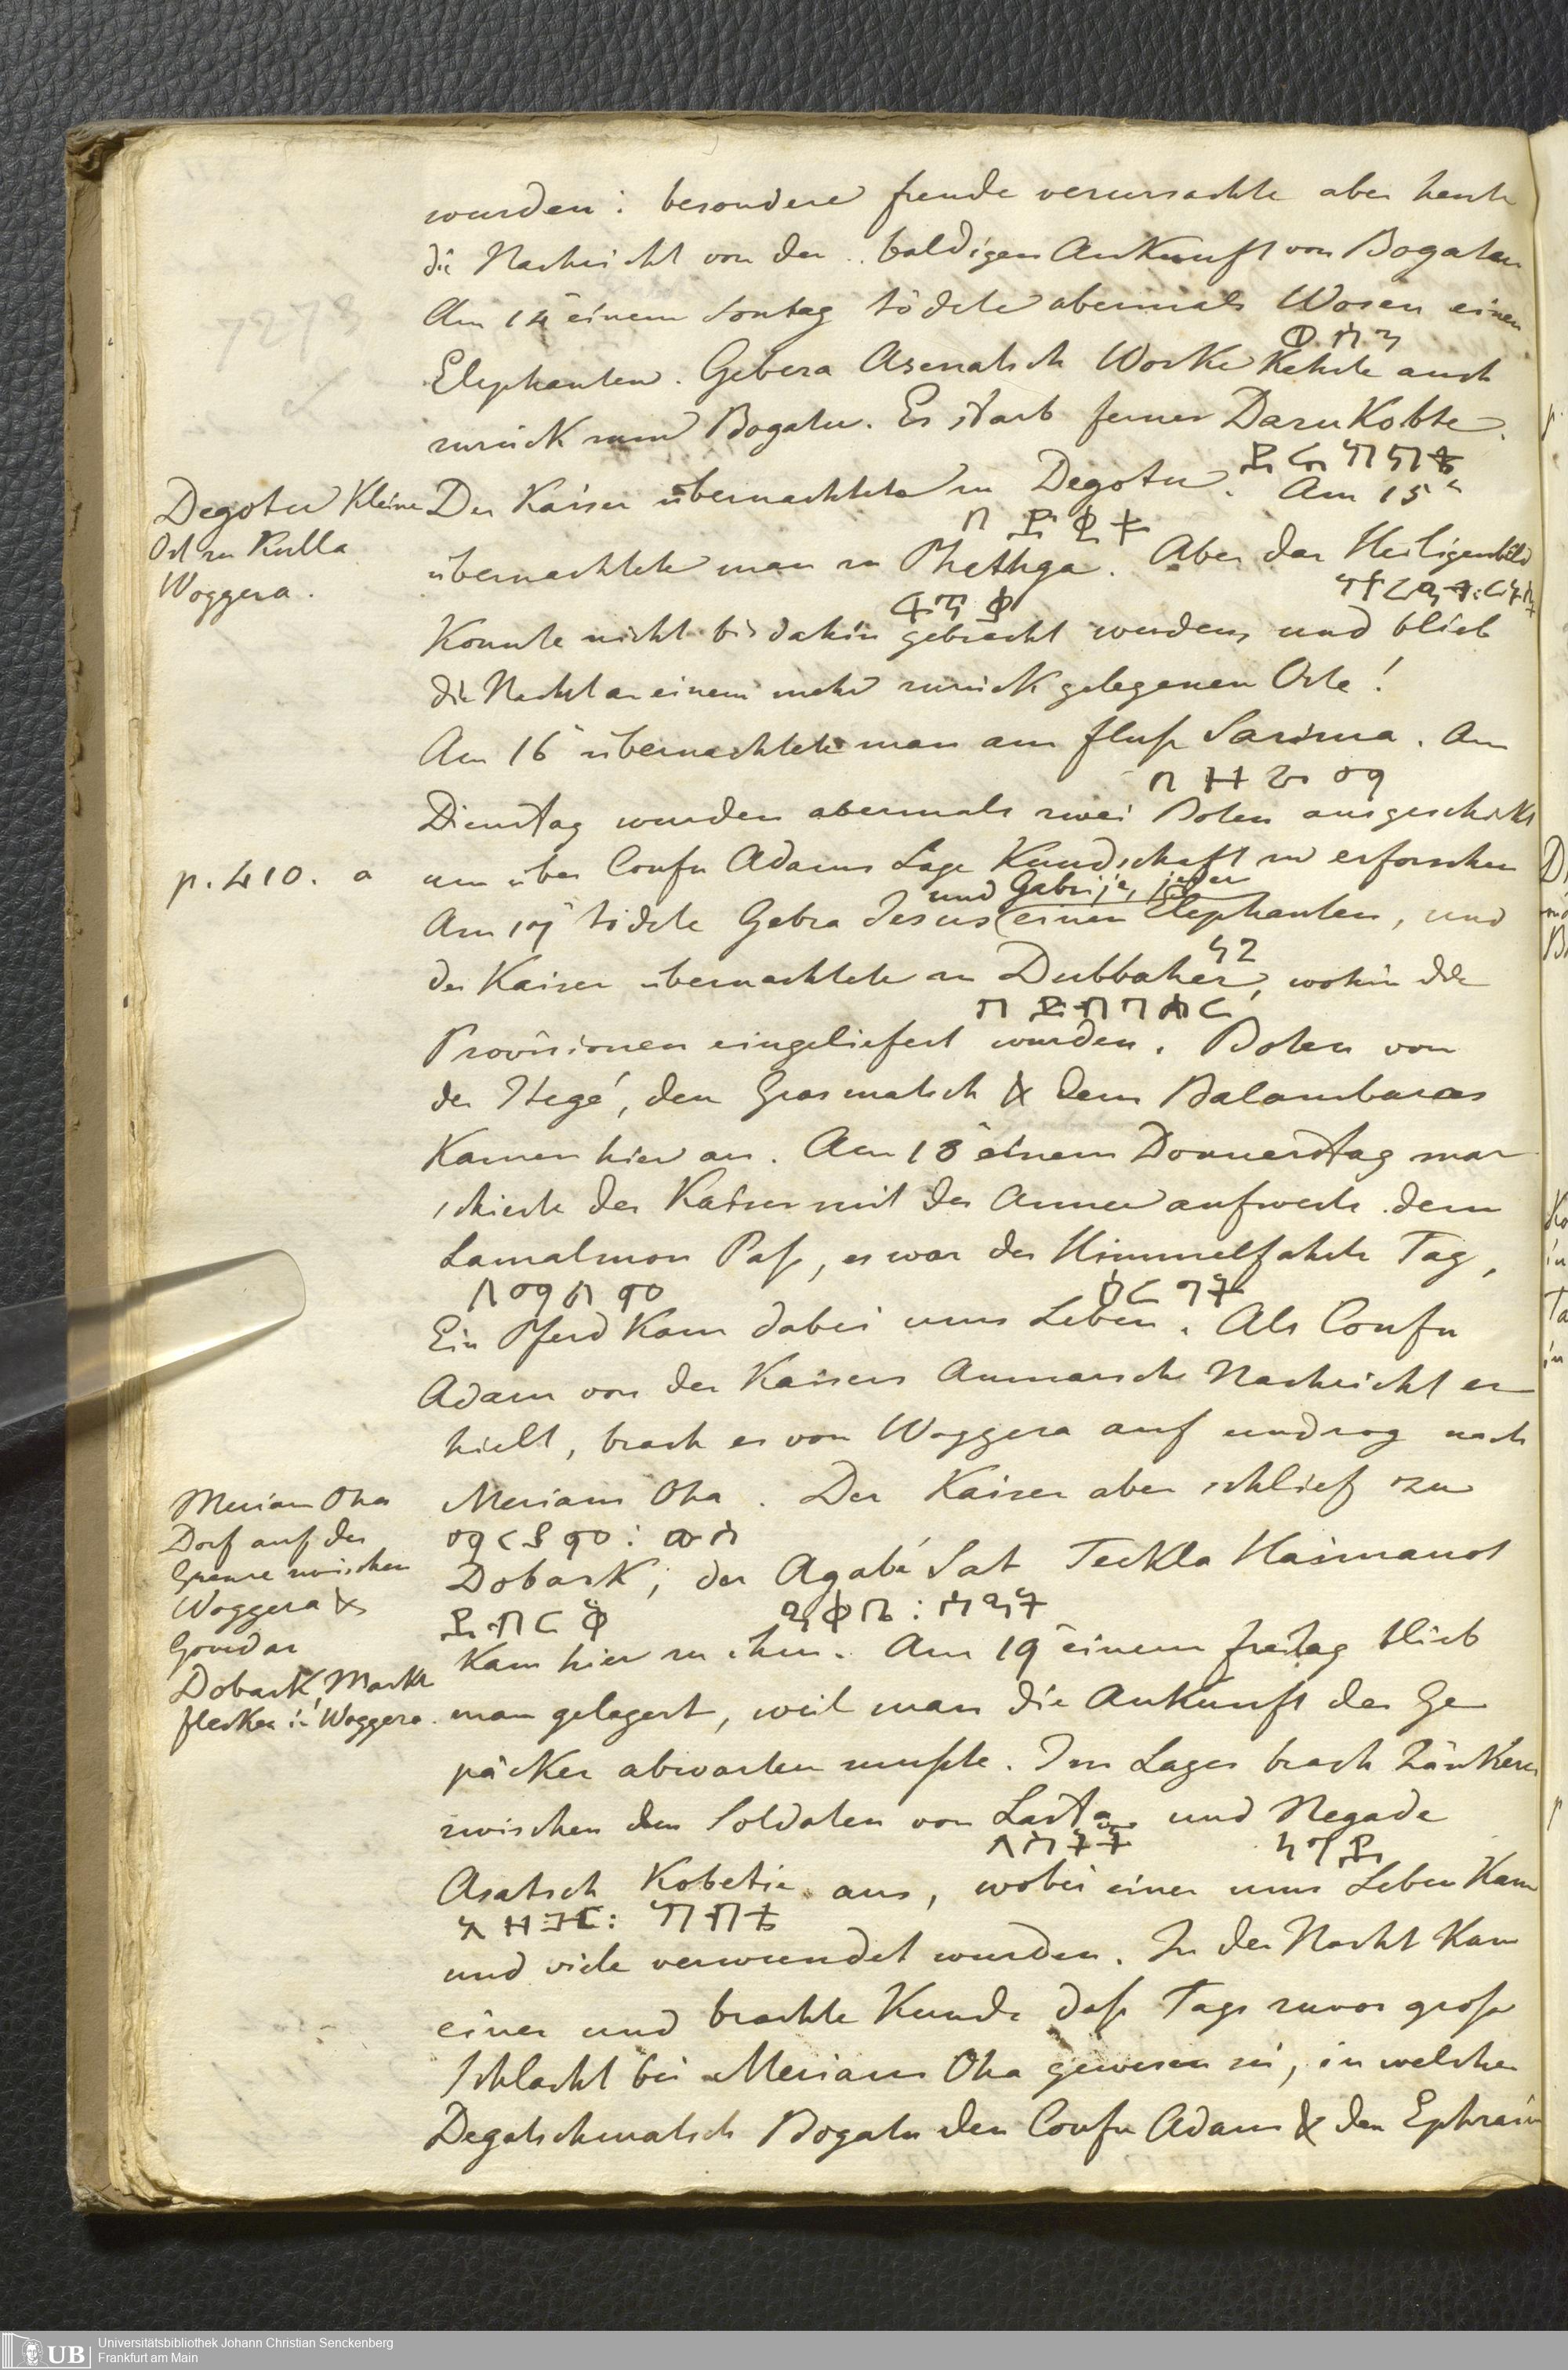 wurden: besondere freude verursachte aber heute
die Nachricht von der baldigen Ankunft von Bogatu
Am 14ⁿ einem Sontag tödete abermals Wosen einen
ወሰን
Elephanten. Gebera Asenatsch Worke kehrte auch
zurück zum Bogatu. Es starb ferner Daru Kobte.
Degotu Kleiner
Ort zu Kulla
Woggera.
Der Kaiser übernachtete zu Degotu. Am 15ⁿ
übernachtete man zu Phethga. Aber das Heiligenbild
Konnte nicht bis dahin gebracht werden, und blieb
die Nacht an einem mehr zurück gelegenen Orte!
Am 16ⁿ übernachtete man am fluß Sarima. Am
በዛሪማ
Dienstag wurden abermals zwei Boten ausgeschickt
p. 410. a
um über Confu Adams Lage Kundschaft zu erforschen
und Gabrije, jeder
Am 17ⁿ tödete Gebra Jesus (einen Elephanten, und
der Kaiser übernachtete zu Dubbaher, wohin die
በደብባሕር
Provisionen eingeliefert wurden. Boten von
der Itegé, den Grasmatsch & dem Balambaras
Kamen hier an. Am 18ⁿ einem Donnerstag mar
schierte der Kaiser mit der Armee aufwerts dem
Lamalmon Paß, es war der Himmelfahrts Tag,
ላማልም
ዕርገት
Ein Pferd Kam dabei ums Leben. Als Confu
Adam von der Kaisers Anmarsche Nachricht er
hielt, brach er von Woggera auf und zog nach
Meriam Oha
Dorf auf der
Grenze zwischen
Woggera &
Gondar
Dobark, Markt
flecken in Woggera.
Meriam Oha. Der Kaiser aber schlief zu
ማርያም: ውሃ
Dobark; der Agabé Sat Teckla Haimanot
ዳባርቅ
ዓቃቤ: ሰዓት
Kam hier zu ihm. Am 19ⁿ einem freitag blieb
man gelagert, weil man die Ankunft der Ge
päcker abwarten mußte. Im Lager brach Zänkerei
zwischen den Soldaten von Lasta und Negade
ላስታ
ነጋዴ
Asatsch Kobetie aus, wobei einer ums Leben Kam
አዛዥ: ጐብቴ
und viele verwundet wurden. In der Nacht Kam
einer und brachte Kunde daß Tags zuvor große
Schlacht bei Meriam Oha gewesen sei, in welcher
Degatschmatsch Bogatu den Confu Adam & den Ephraim
Universitätsbibliothek Johann Christian Senckenberg
Frankfurt am Main
UB